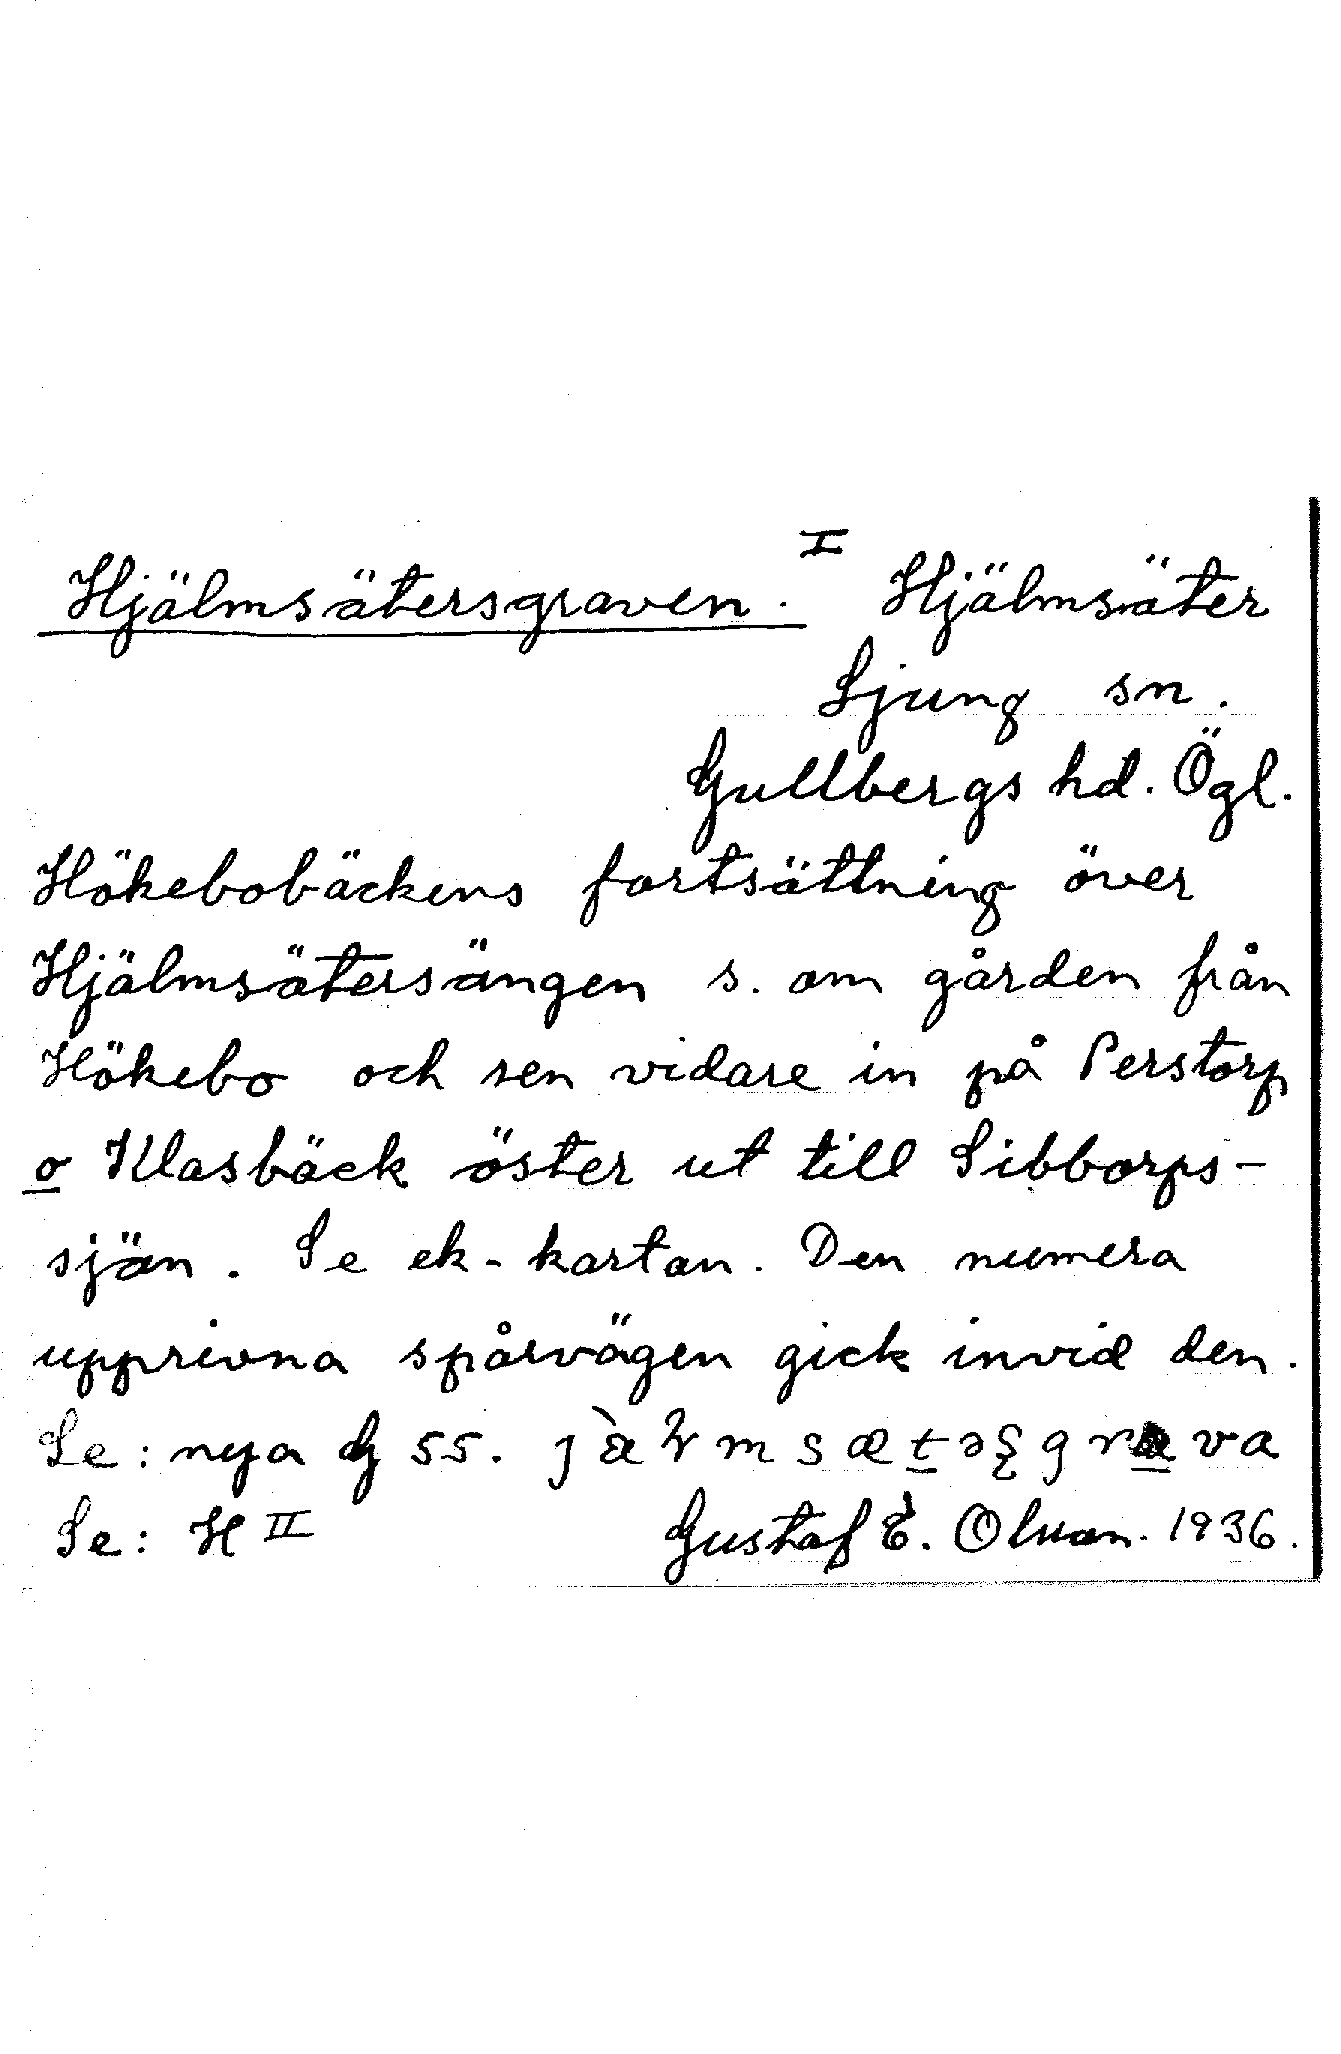 Hjälmsätersgraven. I Hjälmsäter
Ljung sn.
Gullbergs hd. Ögl.
Hökebobäckens fortsättning över
Hjälmsätersängen s. om gården från
Hökebo och sen vidare in på Perstorp
o Klasbäck öster ut till Sibborps-
sjön. Se ek-kartan. Den numera
upprivna spårvägen gick invid den.
Se: nya G 55.
Se: H II Gustaf E. Olson. 1936.